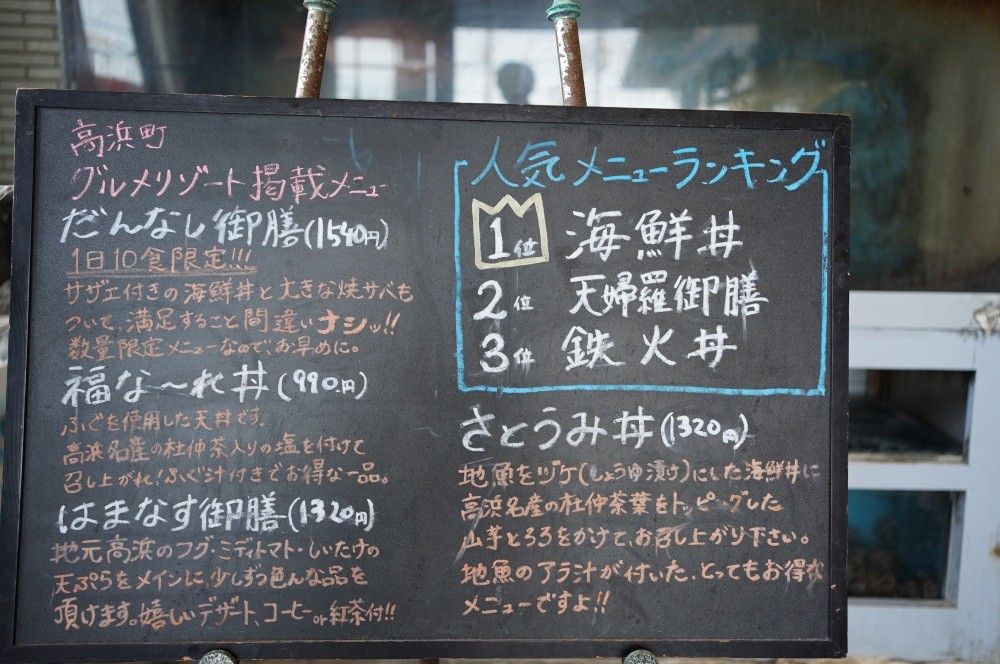 高浜町
グルメリゾート掲載メニュー
だんなし御膳(1540円)
1日10食限定!!!
サザエ付きの海鮮丼と大きな焼サバも
ついて、満足すること間違いナシッ!!
数量限定メニューなので、お早めに。
福な〜れ丼(990円)
ふぐを使用した天丼です。
高浜名産の杜仲茶入りの塩を付けて
召し上がれ!ふぐ汁付きでお得な一品。
はまなす御膳(1320円)
地元高浜のフグ・ミディトマト・しいたけの
天ぷらをメインに、少しずつ色んな品を
頂けます。嬉しいデザート、コーヒーor紅茶付!!
人気メニューランキング
1位 海鮮丼
2位 天婦羅御膳
3位 鉄火丼
さとうみ丼(1320円)
地魚をヅケ(しょうゆ漬け)にした海鮮丼に
高浜名産の杜仲茶葉をトッピングした
山芋とろろをかけて、お召し上がり下さい。
地魚のアラ汁が付いた、とってもお得な
メニューですよ!!